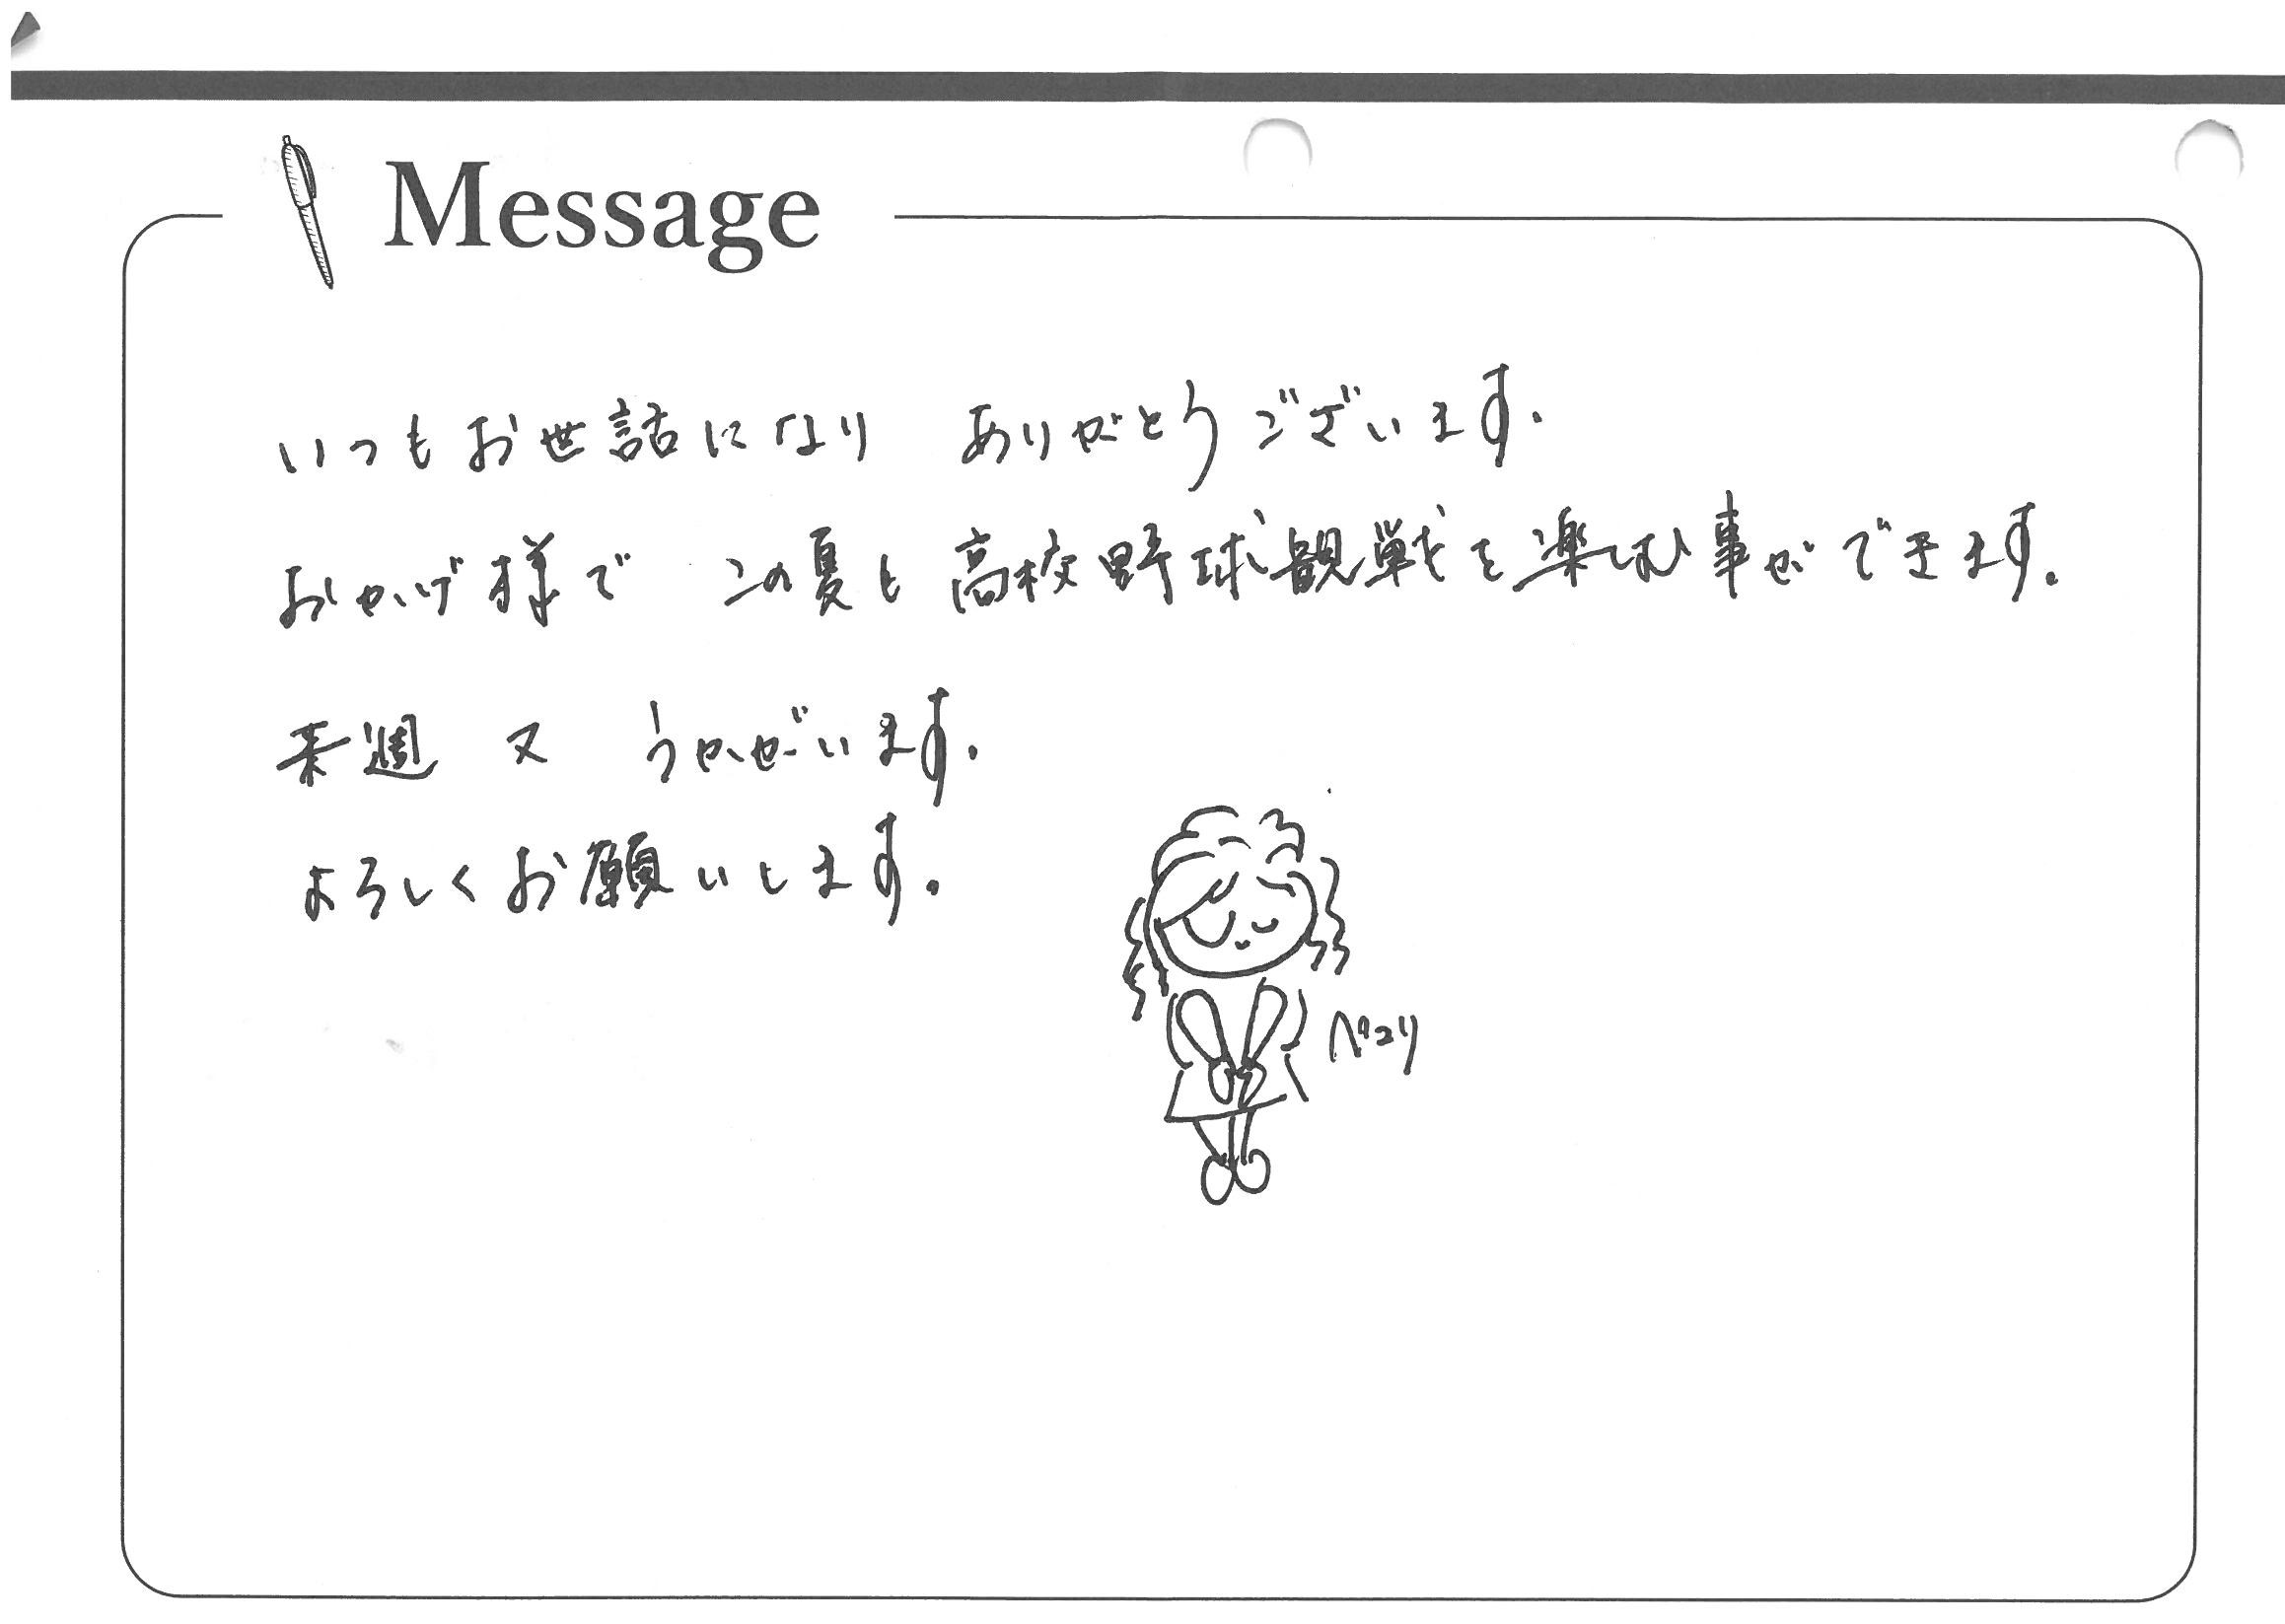 Message
いつもお世話になり ありがとうございます.
おかげ様で この夏も高校野球観戦を楽しむ事ができます.
来週 又 うかがいます.
よろしくお願いします.
ペコリ